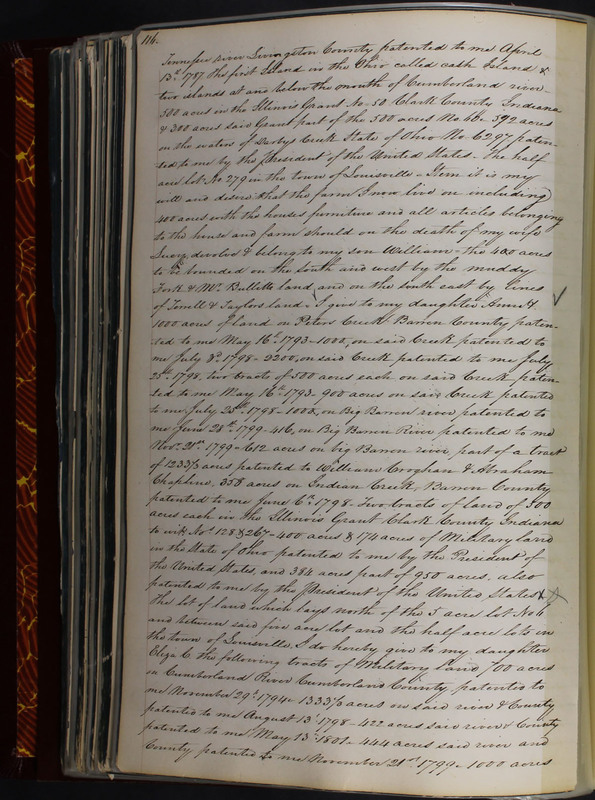 116.
Tennessee River Livingston County patented to me April
13th 1787 the first Island in the Ohio called Cash Island &
two islands at and below the mouth of Cumberland river
500 acres in the Illinois Grant No. 50 Clark County Indiana
& 300 acres said Grant part of the 500 acres No 60 - 592 acres
on the waters of Darbys Creek State of Ohio No. 6297 paten-
ted to me by the President of the United States - The half
acre lot No 279 in the town of Louisville - Item it is my
will and desire that the farm I now live on including
400 acres with the houses furniture and all articles belonging
to the house and farm should on the death of my wife
Lucy devolve & belong to my son William - the 400 acres
to be bounded on the south and west by the muddy
Fork & Mr. Bullitts land and on the south east by lines
of Terrell & Taylors land - I give to my daughter Ann
1000 acres of land on Peters Creek Barren County paten-
ted to me May 16th 1793 - 1000, on said Creek patented to
me July 8th 1798 - 2200, on said Creek patented to me July
25th 1798, two tracts of 500 acres each on said Creek paten-
ted to me May 16th 1793 - 900 acres on said Creek patented
to me July 25th 1798 - 1008, on Big Barren river patented to
me June 28th 1799 - 416, on Big Barren River patented to me
Novr. 21st 1799 - 612 acres on big Barren river, part of a tract
of 1233⅓ acres patented to William Croghan & Abraham
Chapline, 358 acres on Indian Creek, Barren County
patented to me June 6th 1798 - Two tracts of land of 500
acres each in the Illinois Grant Clark County Indiana
to wit Nos. 128 & 267 - 400 acres & 174 acres of Military land
in the State of Ohio patented to me by the President of
the United States, and 384 acres part of 950 acres, also
patented to me by the President of the United States &
the lot of land which lays north of the 5 acre lot No 6
and between said five acre lot and the half acre lots in
the town of Louisville, I do hereby give to my daughter
Eliza C. the following tracts of Military land 700 acres
in Cumberland River Cumberland County, patented to
me November 29th 1794 - 1333⅓ acres on said river & County
patented to me August 13th 1798 - 422 acres said river & County
patented to me May 13th 1801 - 444 acres said river and
County patented to me November 21st 1799 - 1000 acres